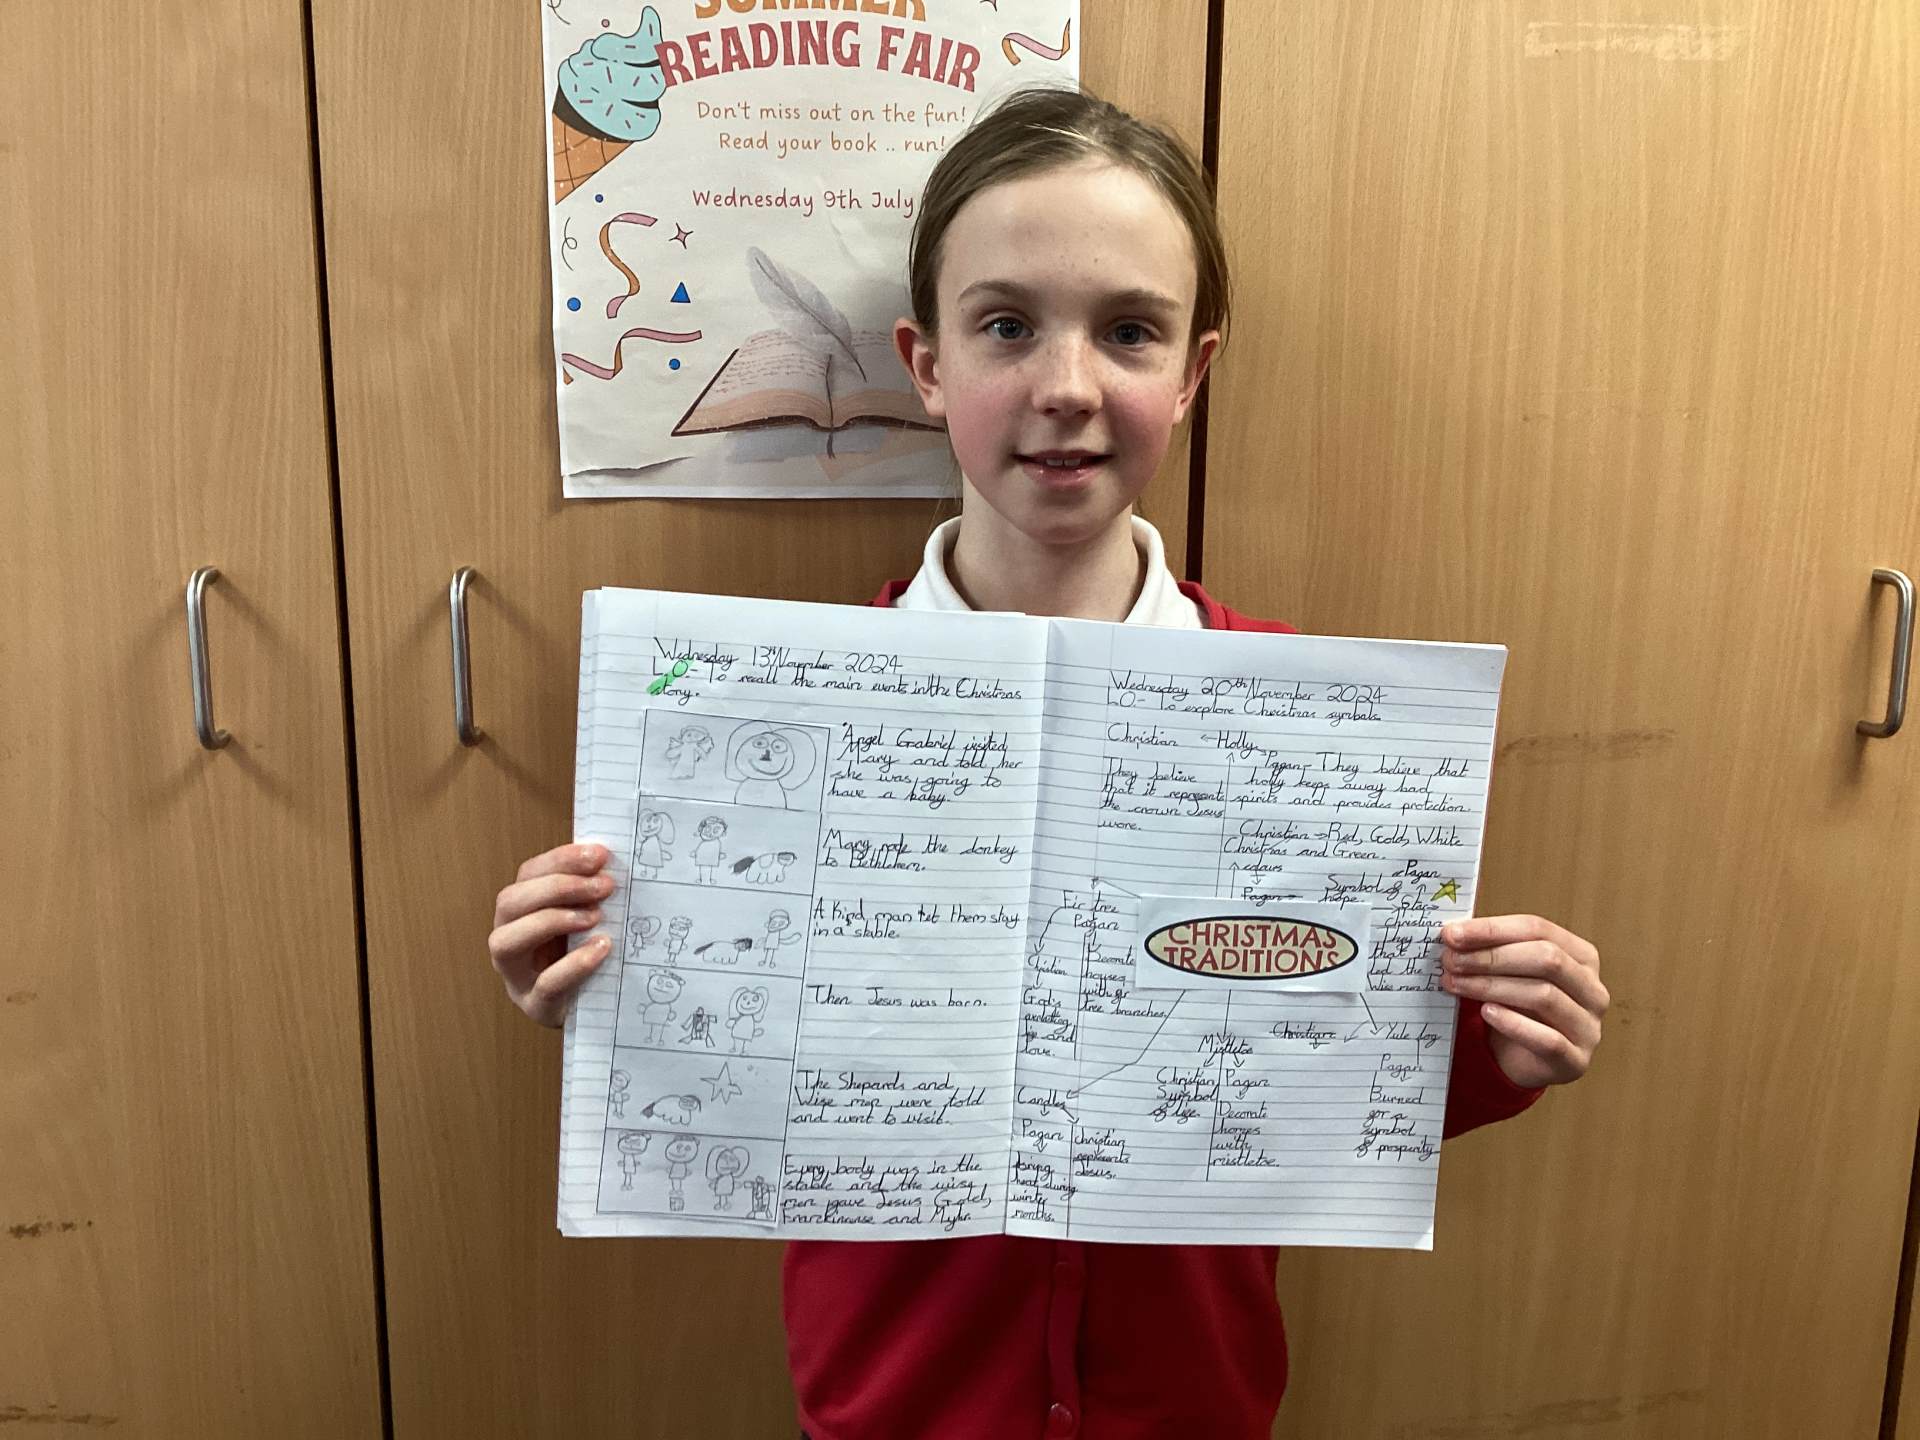 SUMMER
READING FAIR
Don't miss out on the fun!
Read your book .. run!
Wednesday 9th July
Wednesday 13th November 2024
L.O.- To recall the main events in the Christmas
story.
Angel Gabriel visited
Mary and told her
she was going to
have a baby.
Mary rode the donkey
to Bethlehem.
A kind man let them stay
in a stable.
Then Jesus was born.
The Shepards and
Wise men were told
and went to visit.
Every body was in the
stable and the wise
men gave Jesus Gold,
and Myhr.
Wednesday 20th November 2024
LO:- To explore Christmas symbols
Christian ← Holly
They believe
that it represents
the crown Jesus
wore.
Pagan- They believe that
holly keeps away bad
spirits and provides protection.
Christian → Red, Gold, White
and Green.
Christmas
colours
Pagan → Symbol of
hope.
Pagan
Star →
Christian
They
that it
led the 3
Wise men to
Fir tree
Pagan
Decorate
houses
with fir
tree branches,
Christian
God's
love.
and
CHRISTMAS
TRADITIONS
Candles
Pagan
bring
heat during
winter
months.
Christian
represents
Jesus.
Mistletoe
Christian
Symbol
of life.
Pagan
Decorate
homes
with
mistletoe.
Christian
Yule log
Pagan
Burned
for a
symbol
of prosperity